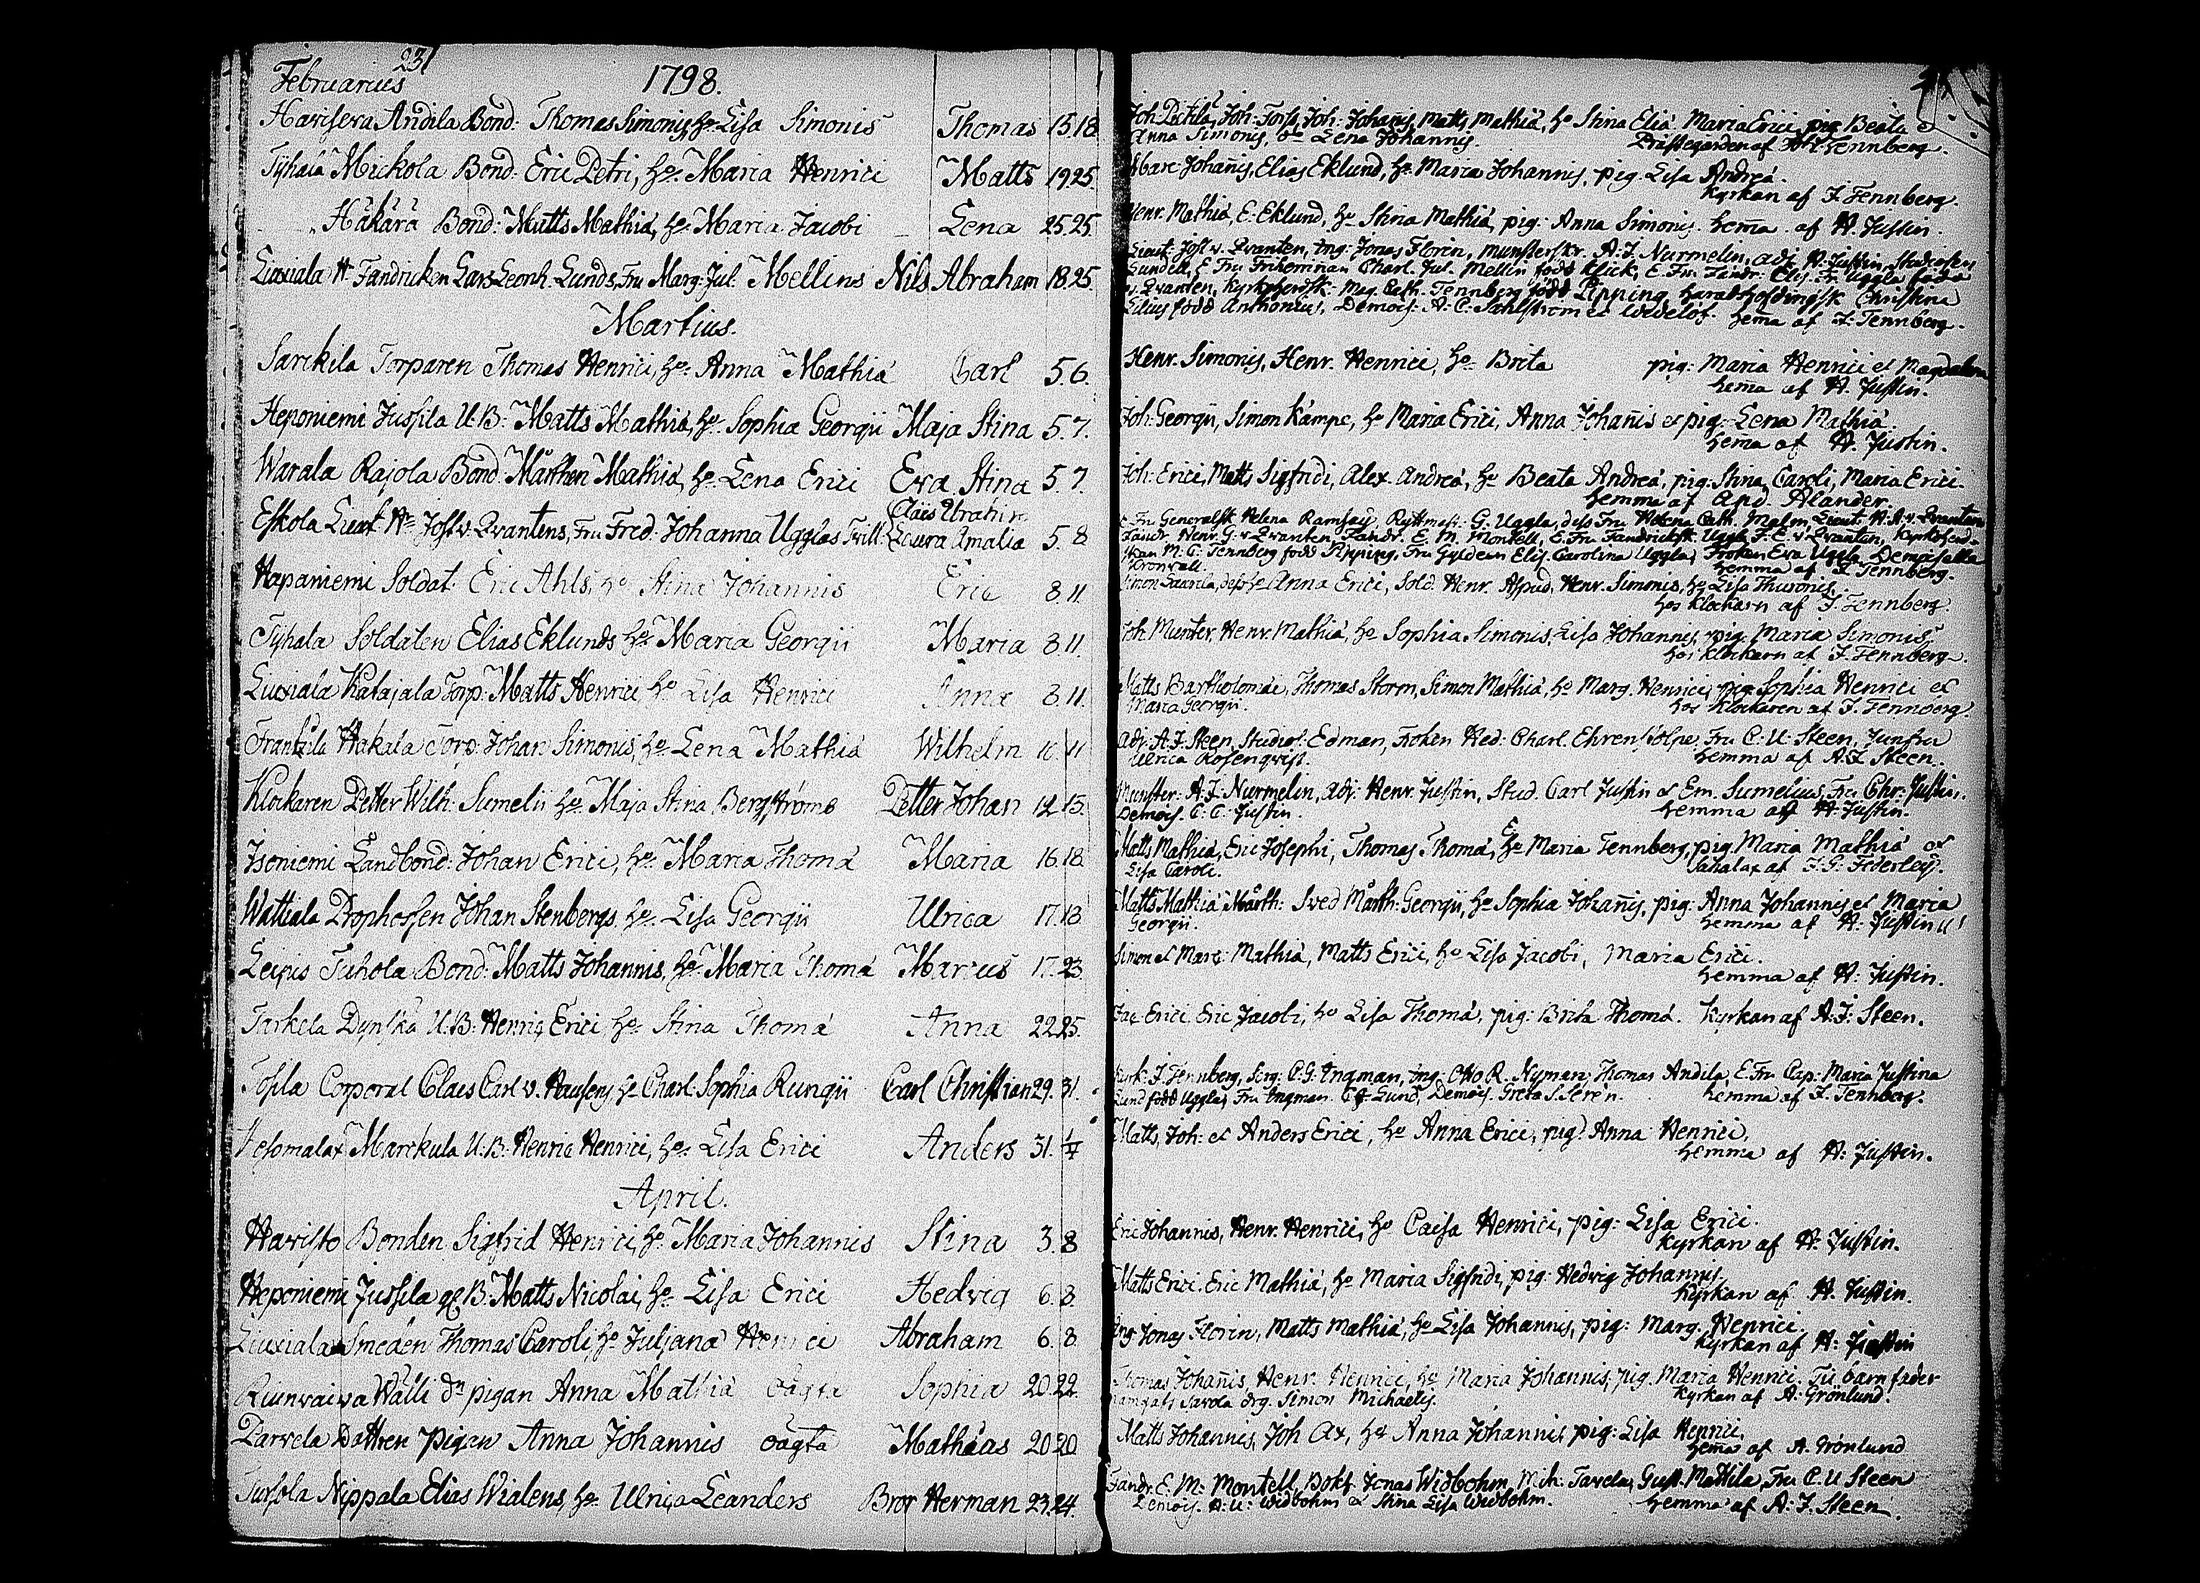 231
Februarius 1798.
Havisera Andila Bond: Thomas Simonis, h:o Lisa Simonis Thomas 15 18
Tyhala Mickola Bond: Eric Petri, h:o Maria Henrici Matts 19 25
Håkära Bond: Matts Mathiæ, h:o Maria Jacobi Lena 25 25
Liuxiala H. Fändricken Lars Leonh. Lunds, Fru Marg: Jul. Mellins Nils Abraham 18 25
Martius.
Sarckila Torparen Thomas Henrici, h:o Anna Mathiæ Carl 5. 6.
Heponiemi Jussila U.B: Matts Mathiæ, h:o Sophia Georgii Maja Stina 5. 7.
Warala Rajola Bond. Mårthen Mathiæ, h:o Lena Erici Eva Stina 5. 7.
Eskola Lieut Hr Jost v. Qvantens, Fru Fred: Johanna Ugglas Trill: Claes Abrahim
Laura Amalia 5. 8
Hapaniemi Soldat. Eric Ahls, h:o Stina Johannis Eric 8. 11.
Tyhala Soldaten Elias Eklunds h:o Maria Georgii Maria 8. 11.
Liuxiala Katajala Torp. Matts Henrici h:o Lisa Henrici Anna 8. 11.
Frantsila Hakala Torp: Johan Simonis, h:o Lena Mathiæ Wilhelm 10. 11
Klockaren Petter Wilh: Sumelii h:o Maja Stina Bergströms Petter Johan 12 15.
Isoniemi Landbond: Johan Erici, h:o Maria Thomæ Maria 16 18.
Wattiala Prophossen Johan Stenbergs h:o Lisa Georgii Ulrica 17. 18
Leipis Tuhola Bond: Matts Johannis, h:o Maria Thomæ Marcus 17. 23.
Tarkela Dynska U.B: Henric Erici h:o Stina Thomæ Anna 22 25.
Tosila Corporal Claes Carl v. Hausens h:o Charl. Sophia Rungii Carl Christian 29. 31.
Vesomalax Marckula U.B: Henric Henrici, h:o Lisa Erici Anders 31. 1/4
April.
Havisto Bonden Sigfrid Henrici, h:o Maria Johannis Stina 3. 8
Heponiemi Jussila B: Matts Nicolai, h:o Lisa Erici Hedvig 6. 8.
Liuxiala Smeden Thomas Caroli, h:o Juljana Henrici Abraham 6. 8.
Runvaiva Walli pigan Anna Mathiæ oägta Sophia 20. 22.
Parvela Dattren pigan Anna Johannis oägta Mathias 20 20.
Tursola Nippala Elias Wialens, h:o Ulrica Leanders Bror Herman 23. 24.
Joh. Joh: Joh: Johanis, Matts Mathiæ, h:o Stina Eliæ Maria Erici, pig. Beata
Anna Simonis, Lena Johannis. Prästegården af Joh. Tennberg.
Marc Johanis, Elias Eklund, h:o Maria Johannis, pig. Lisa Andreæ.
kyrkan af J. Tennberg.
Henr. Mathiæ, E: Eklund, h:o Stina Mathiæ, pig: Anna Simonis. hema af H. Justin.
Lieut: Jost v. Qvanten, ing: Jonas Florin, munsterskr. A. J. Nurmelin, adj H. Justin,
Sundell, E Fru Friherrinnan Charl. Jul. Mellin född Klick, E. Fru Fändr. Elis: Fr. Uggla född
v. Qvanten, kyrkoherdsk: Mag. Cath. Tennberg född Pipping, häradshöfdingsk Christina
Lilius född Anthonius, Demois: A. C. Sahlstrom et Wedelöf hema af J. Tennberg.
Henr. Simonis, Henr. Henrici, h:o Brita pig: Maria Henrici et Magdalena
hema af H. Justin.
Joh: Georgii, Simon Kämpe, h:o Maria Erici, Anna Johanis et pig: Lena Mathiæ.
hema af H. Justin.
Joh: Erici, Matts Sigfridi, Alex. Andreæ, h:o Beata Andreæ, pig: Stina Caroli, Maria Erici.
hemma af And. Alander.
E Fru Generalsk. Helena Ramsay, Ryttmest: G. Uggla, dess Fru Helena Cath. Malm, Lieut. H. A. v. Qvanten
Fändr. Henr. G. v. Qvanten, Fändr. E. M. Montell, E. Fru Fändricksk. Uggla F. E. v. Qvanten, kyrkoherd-
skan M. C. Tennberg född Pipping, Fru Gyldeen Elis. Carolina Uggla, Fröken Eva Uggla, Demoiselle
Kronvall. hemma af J. Tennberg.
Simon Saarila, dess h:o Anna Erici, Sold. Henr. Aspud, Henr. Simonis, h:o Lisa Thuronis.
hos klockarn af J. Tennberg.
Joh. Munter, Henr. Mathiæ, h:o Sophia Simonis, Lisa Johannis, pig. Maria Simonis.
hos klockarn af J. Tennberg.
Matts Bartholomæi, Thomas Storm, Simon Mathiæ, h:o Marg. Henrici, pig: Sophia Henrici et
Maria Georgii. hos klockaren af J. Tennberg.
Adj: A. J. Steen, Studios: Edman, Fröken Hed: Charl. Ehrenstolpe, Fru C: U: Steen, Junfru
Ulrica Rosenqvist. hemma af A. J. Steen.
Munster. A. J. Nurmelin, adj: Henr. Justin, Stud. Carl Justin et Em. Sumelius, Fru Chr: Justin,
Demois. C. C. Justin. hemma af H. Justin.
Matts Mathiæ, Eric Josephi, Thomas Thomæ, h:o Maria Tennberg, pig. Maria Mathiæ et
Lisa Caroli. Sahalax af J. G. Federley.
Matts Mathiæ Mårth: Sved Mårth: Georgii, h:o Sophia Johanis, pig: Anna Johannis et Maria
Georgii. hemma af H: Justin
Simon et Marc: Mathiæ, Matts Erici, h:o Lisa Jacobi, Maria Erici.
hemma af H: Justin.
Erici Eric Jacobi, h:o Lisa Thomæ, pig: Brita Thomæ. kyrkan af A. J: Steen.
J. Tennberg, Serg: C. G. Ingman, ing: Otto R. Nyman, Thomas Andila, E. Fru Cap: Maria Justina
Lund född Uggla, Fru Ingman. Lund, Demois. Greta S. Seren. hemma af J. Tennberg.
Matts, Joh: et Anders Erici, h:o Anna Erici, pig: Anna Henrici,
hemma af H: Justin.
Eric Johannis, Henr. Henrici, h:o Caisa Henrici, pig: Lisa Erici.
kyrkan af H. Justin.
Matts Erici. Eric Mathiæ, h:o Maria Sigfridi, pig: Hedvig Johannis.
kyrkan af H. Justin.
Ing Jonas Florin, Matts Mathiæ, h:o Lisa Johannis, pig: Marg. Henrici.
kyrkan af H: Justin
Thomas Johanis, Henr. Henrici, h:o Maria Johannis, pig. Maria Henrici. Til barnfader
Savola drg. Simon Michaelis. kyrkan af A: Grönlund.
Matts Johannis, Joh Ax, h:o Anna Johannis, pig: Lisa Henrici,
hema af A. Grönlund
Fändr. E. M: Montell, Jonas Widbohm, Mich: Tavela, Gust. Mattila, Fru C. U Steen
Demois. H. U: Widbohm et Stina Lisa Widbohm. hemma af A. J. Steen.